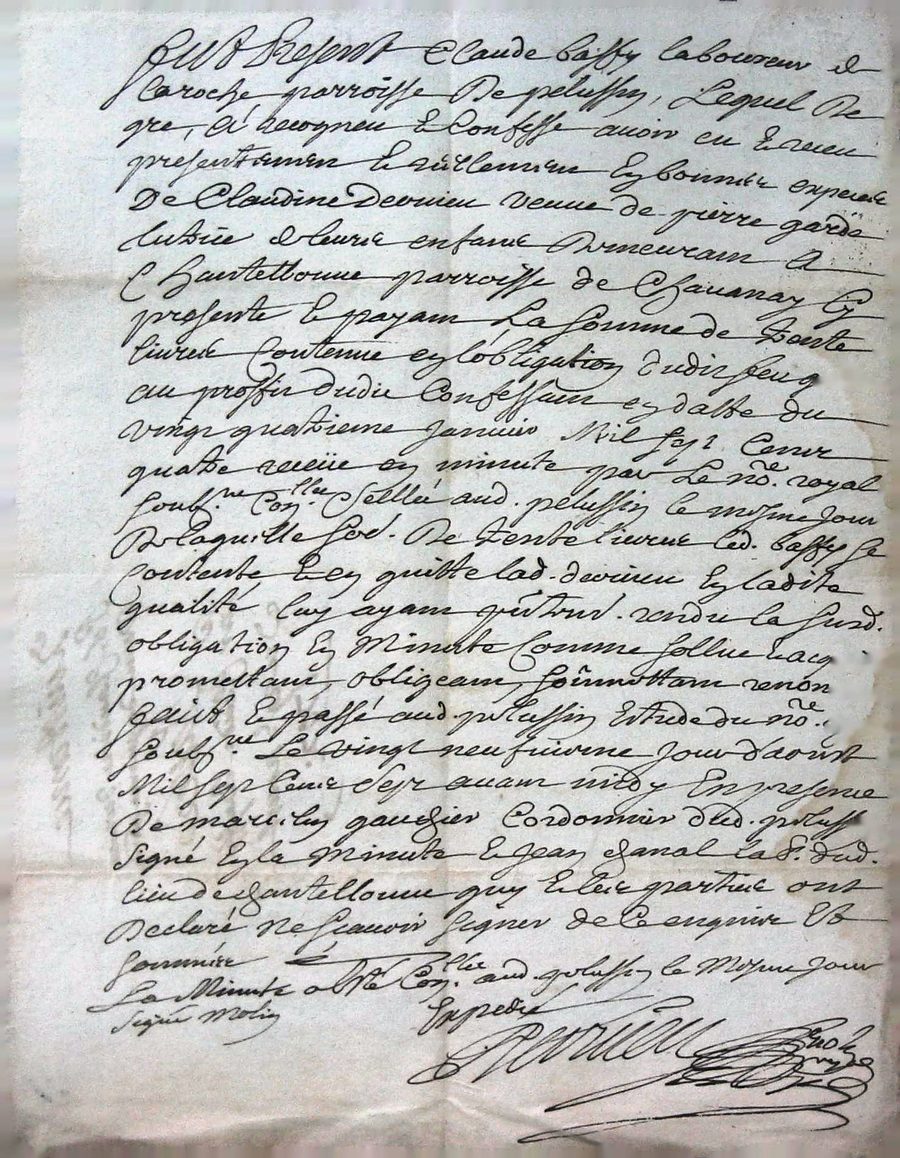 Fut Present Claude baffy laboureur de
la roche parroisse De pelussin, Lequel De
gré, a recogneu & Confessé avoir eu & receu
présentement & réellement En bonnes especes
De Claudine Dervieu veuve de pierre garde
tutrice de leurs enfans Demeurant a
Chantellouue parroisse de Chauanay Cy
présente & payant La Somme de trente
liures Contenue en lobligation dudit feu
au proffit dudit Confessant en datte du
vingt quatrieme Januier Mil Sept Cent
quatre receüe en minute par Le no.re royal
Soub.ne Con.llée Scellée aud. pelussin le mesme Jour
De laquelle So.e De trente liures led. baffy Se
Contente & en quitte lad. dervieu En ladite
qualité luy ayant rendu la Susd.
obligation En Minute Comme Sollue
promettant, obligeant, Soûmettant renon
faict & passé aud. pelussin Estude du no.re
Soub.ne Le vingt neufuieme Jour d'aoust
Mil Sept Cent Sept auant midy En presence
De marcelin gaudier Cordonnier dud. peluss
Signé En la Minute & Jean la.r dud.
lieu de chantellouue quy & les parties ont
Declaré ne Scauoir Signer de Ce enquis Et
Sommés
La Minute a esté Con.llée aud. pelussin le Mesme Jour
Signé Molin Expedié
Dervieu no.re
royal